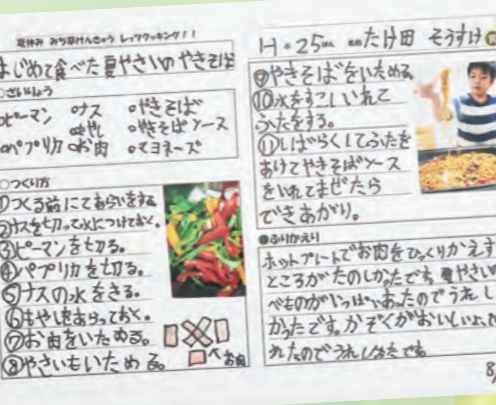 夏休み みち草けんきゅう レッツクッキング!!
はじめて食べた夏やさいのやきそば
○ざいりょう
○ピーマン ○ナス ○やきそば
○もやし ○やきそばソース
○パプリカ ○お肉 ○マヨネーズ
○つくり方
①つくる前にてあらいをする
②ナスを切って水につけておく。
③ピーマンを七刀る。
④パプリカを切る。
⑤ナスの水をきる。
⑥もやしをあらっておく。
⑦お肉をいためる。
⑧やさいもいためる。
お肉
H=25 たけ田 そうすけ
⑨やきそばをいためる。
⑩水をすこしいれて
ふたをする。
⑪しばらくしてふたを
あけてやきそばソース
をいれてまぜたら
できあがり。
●ふりかえり
ホットプレートでお肉をひっくりかえす
ところがたのしかったです。夏やさい
べものがいっぱいあったのでうれし
かったです。かぞくがおいしいよ、
れたのでうれしかったです。
8/